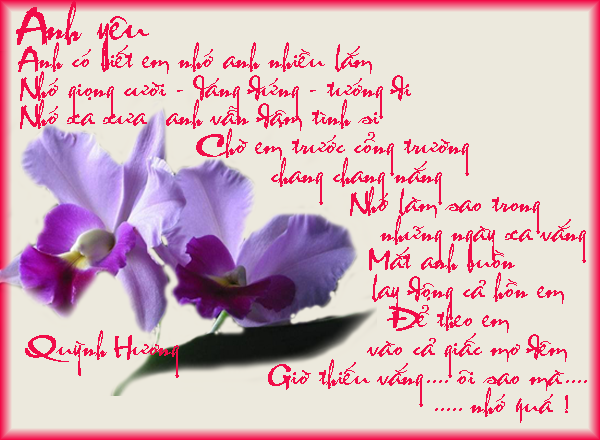 Anh yêu
Anh có biết em nhớ anh nhiều lắm
Nhớ giọng cười - dáng đứng - tướng đi
Nhớ xa xưa anh vẫn đậm tình si
Chờ em trước cổng trường
chang chang nắng
Nhớ làm sao trong
những ngày xa vắng
Mắt anh buồn
lay động cả hồn em
Để theo em
vào cả giấc mơ đêm
Giờ thiếu vắng.... ôi sao mà....
..... nhớ quá !
Quỳnh Hương